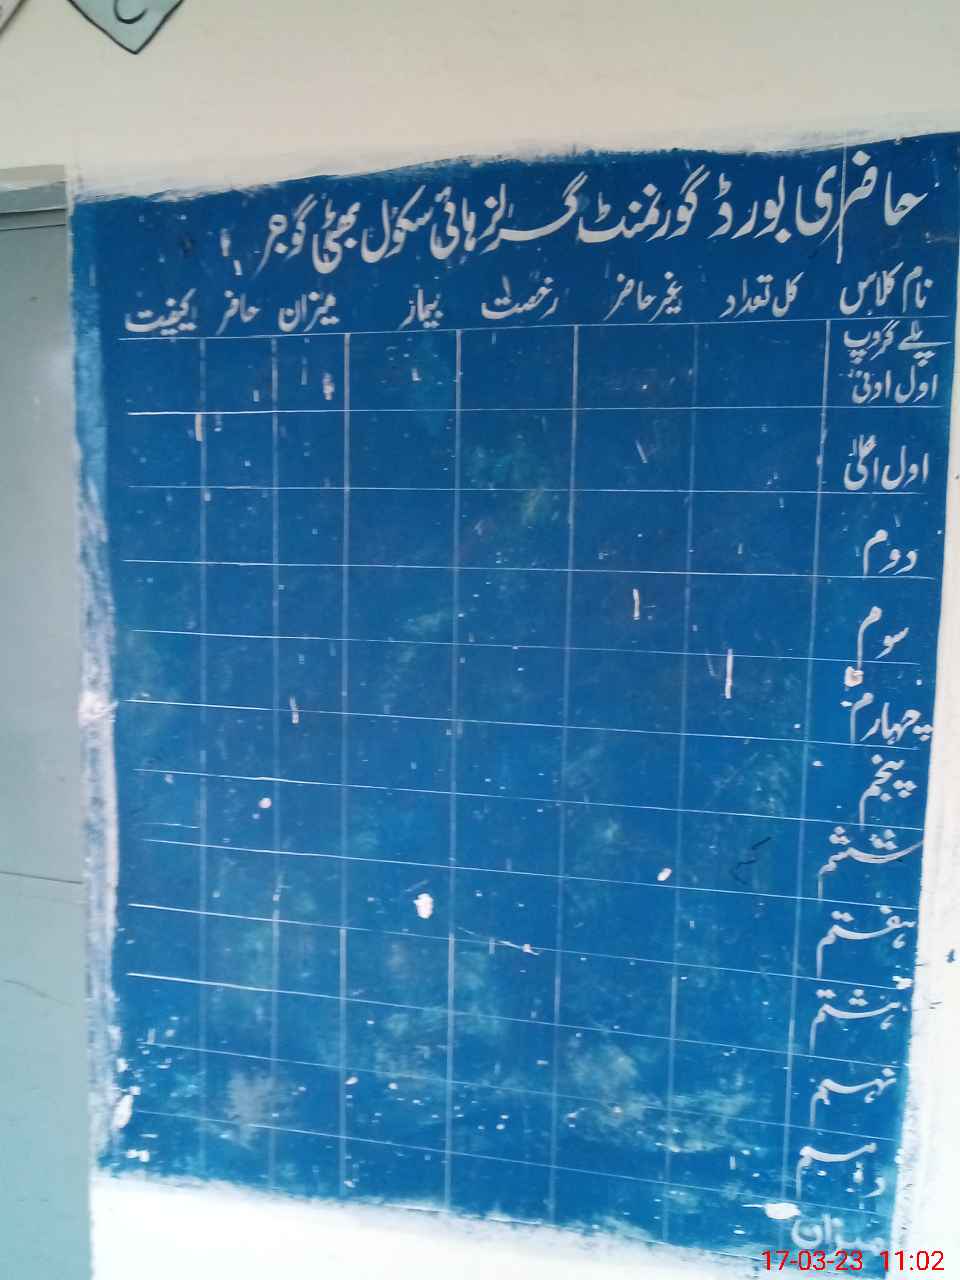 حاضری بورڈ گورنمنٹ گرلز ہائی سکول بھٹی گوجر
نام کلاس کل تعداد غیر حاضر رخصت بیمار میزان حاضر کیفیت
پلے گروپ
اول ادنیٰ
اول اعلیٰ
دوم
سوم
چہارم
پنجم
ششم
ہفتم
ہشتم
نہم
دہم
میزان
17-03-23 11:02